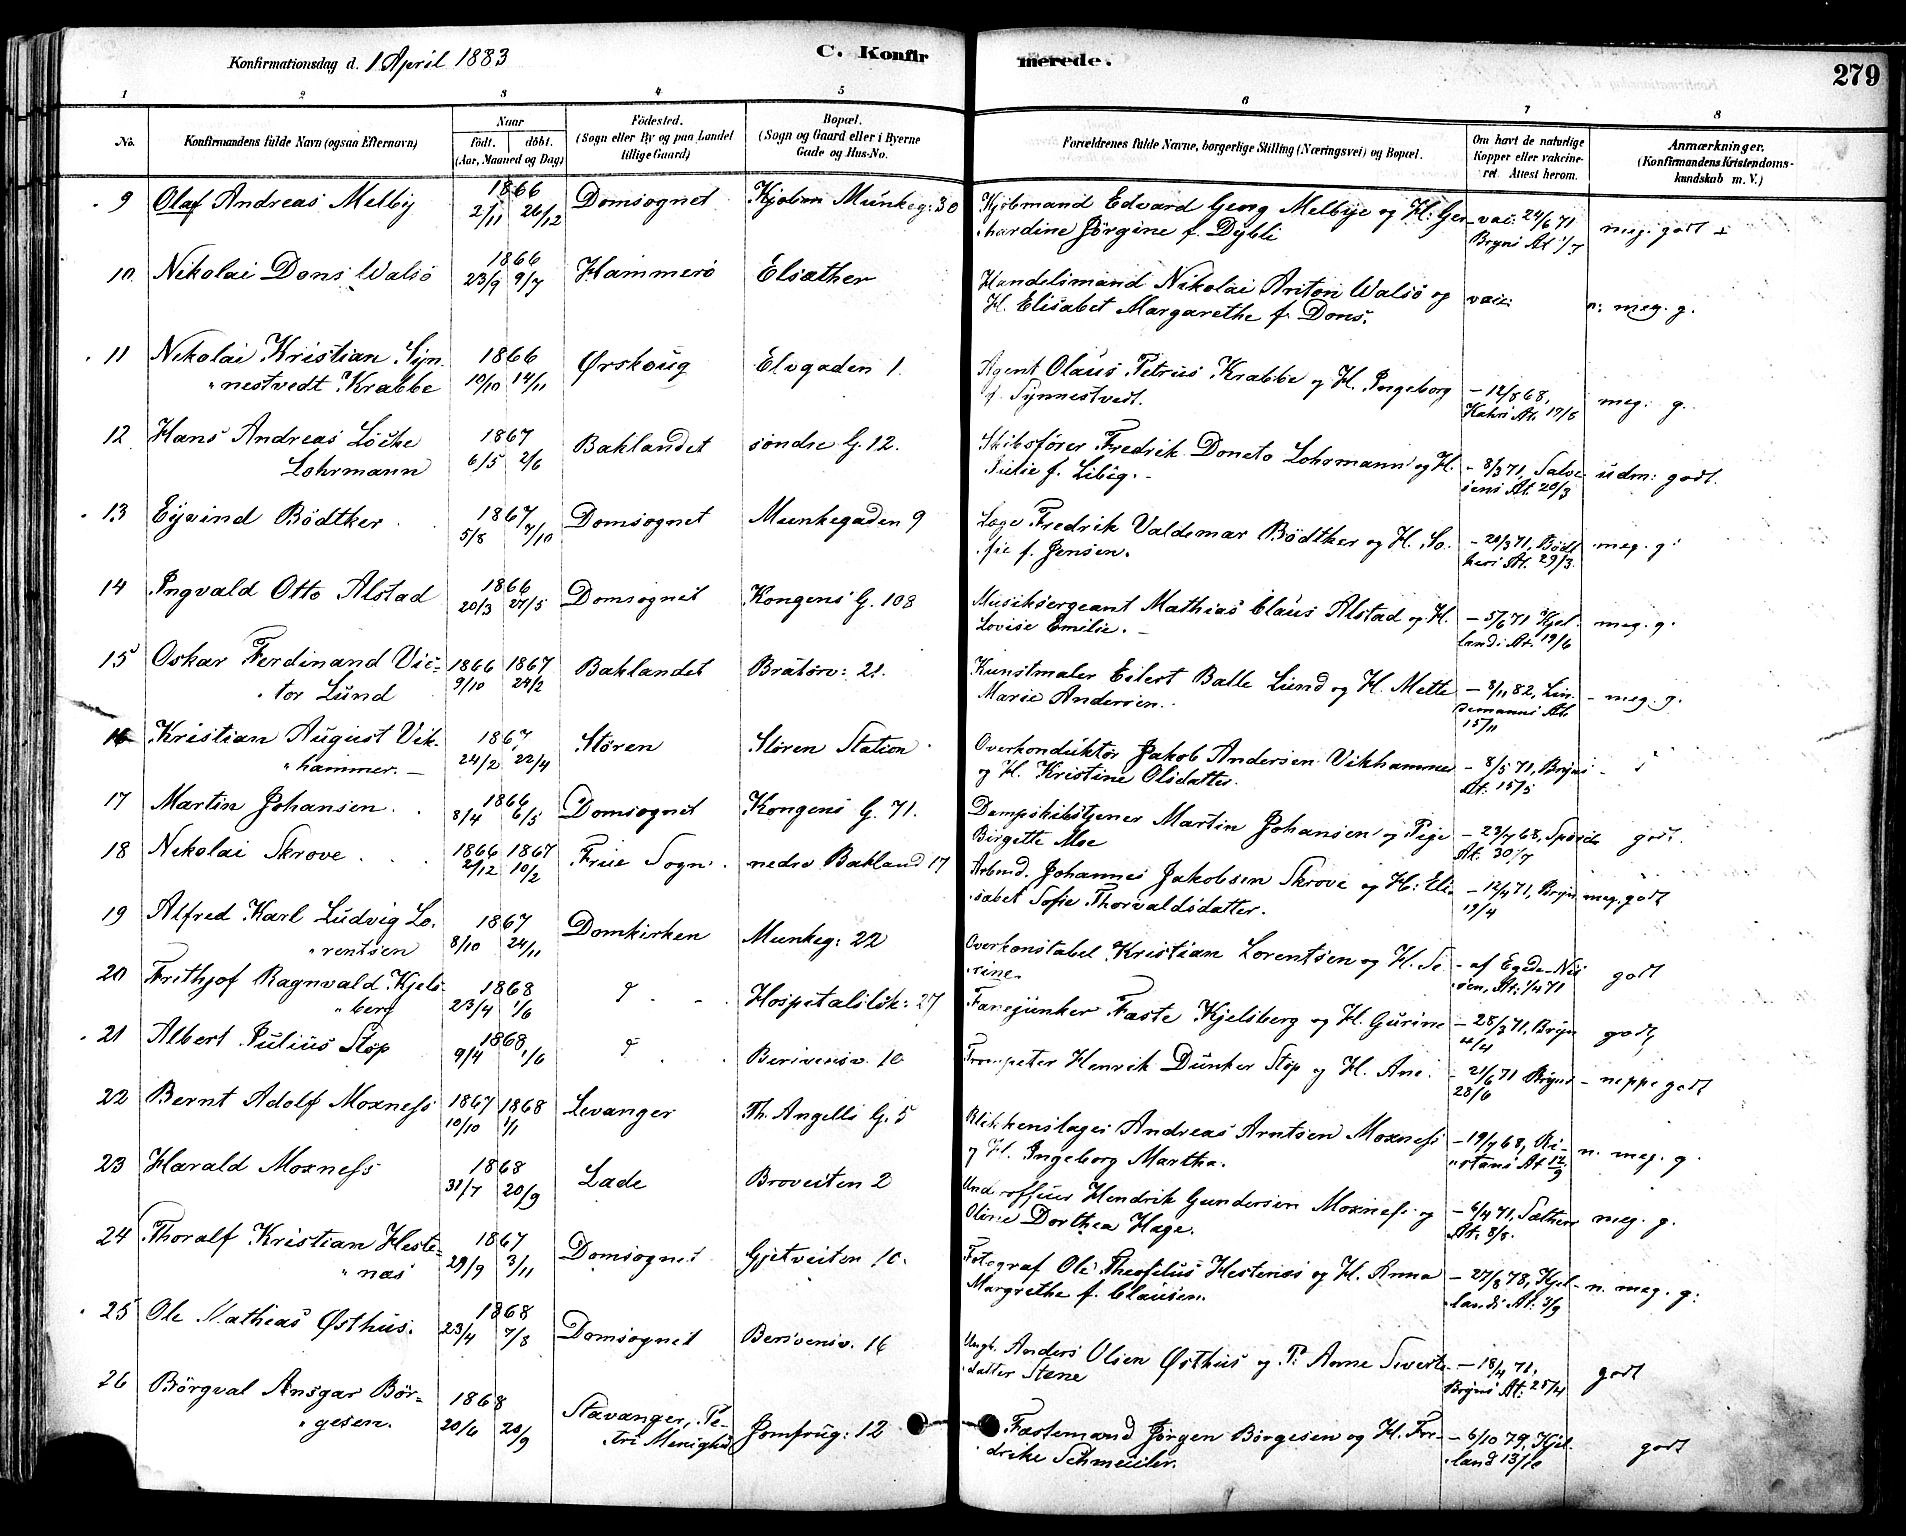 Konfirmationsdag d. 1 April 1883
C. Konfirmerede.
279
1 2 3 4 5 6 7 8
No. Konfirmandens fulde Navn (ogsaa Efternavn) Naar födt. döbt. (Aar, Maaned og Dag) Födested. (Sogn eller By og paa Landet tillige Gaard) Bopæl. (Sogn og Gaard eller i Byerne Gade og Hus-No. Forældrenes fulde Navne, borgerlige Stilling (Næringsvei) og Bopæl. Om havt de naturlige Kopper eller vakcineret. Attest herom. Anmærkninger. (Konfirmandens Kristendomskundskab m. V.)
9 Olaf Andreas Melby 1866 2/11 26/12 Domsognet Kjøbm Munkeg: 30 Kjöbmand Edvard Georg Melbye og H. Ger- vac. 24/6 71 meg. godt
hardine Jörgine f. Dybli Bryns At 1/7
10 Nikolai Dons Walsö 1866 23/9 9/7 Hammerö Elsæther Handelsmand Nikolai Anton Walsö og vac: n: meg. g.
H. Elisabet Margarethe f. Dons.
11 Nikolai Kristian Syn- 1866 10/10 14/11 Ørskoug Elvgaden 1. Agent Olaus Petrus Krabbe og H. Ingeborg - 12/8 68, meg: g.
nestvedt Krabbe f. Synnestvedt. At. 19/8
12 Hans Andreas Löcke 1867 6/5 2/6 Baklandet söndre G. 12. Skibsförer Fredrik Doneto Lohrmann og H. - 8/3 71, Salve- udm: godt.
Lohrmann Julie f. Libig. - sens At. 20/3
13 Eyvind Bödtker 1867 5/8 7/10 Domsognet Munkegaden 9 Læge Fredrik Valdemar Bödtker og H. So- - 20/3 71, Bödt meg. g:
fie f. Jensen. kers At. 29/3
14 Ingvald Otto Alstad 1866 20/3 27/5 Domsognet Kongens G. 108 Musiksergeant Mathias Claus Alstad og H. - 5/6 71 Kjel- meg. g.
Lovise Emilie. - lands At. 19/6
15 Oskar Ferdinand Vic- 1866 9/10 1867 24/2 Baklandet Bratörv: 21. Kunstmaler Eilert Balle Lund og H. Mette - 8/11 82, Lin- - meg. g.
tor Lund Marie Andersen. demanns At. 15/11
16 Kristian August Vik- 1867 24/2 22/4 Stören Stören Station Overkonduktör Jakob Andersen Vikhammer - 8/5 71, Bryns
hammer. - og H. Kristine Olsdatter. At. 15/5
17 Martin Johansen 1866 8/4 6/5 Domsognet Kongens G. 71. Dampskibstjener Martin Johansen og Pige - 23/7 68, godt.
Birgette Moe At. 30/7
18 Nikolai Skrove 1866 2/12 1867 10/2 Frue Sogn nedre Bakland 17 Arbmd. Johannes Jakobsen Skrove og H: Eli- - 12/4 71, Bryns meg. godt
sabet Sofie Thorvaldsdatter. 19/4
19 Alfred Karl Ludvig Lo- 1867 8/10 24/11 Domkirken Munkeg: 22 Overkonstabel Kristian Lorentsen og H. Se- - af Egede-Nis- godt
rentsen rine. sen, At: 1/4 71
20 Frithjof Ragnvald Kjels- 1868 23/4 1/6 Hospitalslök: 27 Fanejunker Faste Kjelsberg og H. Gurine - 28/3 71, Bryn godt
berg 4/4
21 Albert Julius Stöp 1868 9/4 1/6 Berivensv. 10 Trompeter Henrik Dunker Stöp og H. Ane. - 21/6 71 Bryns - neppe godt
28/6
22 Bernt Adolf Moxness 1867 10/10 1868 1/1 Levanger Th. Angells G. 5 Blikkenslager Andreas Arntsen Moxness - 19/7 68, n. meg. g.
og H. Ingeborg Martha. At 12/9
23 Harald Moxness 1868 31/7 20/9 Lade Broveiten 2 Underofficer Hendrik Gundersen Moxness og - 6/4 71, Sæthers meg. g.
Oline Dorthea Hage. At. 8/8.
24 Thoralf Kristian Heste- 1867 29/9 3/11 Domsognet Gjetveiten 10. Fotograf Ole Theofilus Hestenes og H. Anna - 27/8 78, Kjel- n. meg. g:
næs Margrethe f. Clausen. lands At. 3/9
25 Ole Mathias Østhus. 1868 23/4 7/8 Domsognet Bersvensv. 16 Ungk. Anders Olsen Østhus og P: Anne Siverts- - 18/4 71, godt
datter Stene Bryns At: 25/4
26 Börgval Ansgar Bör- 1868 20/6 20/9 Stavanger, Pe- Jomfrug: 12 Fæstemand Jörgen Börgesen og H. Fre- - 6/10 79, Kjel- godt
gesen. tri Menighed drike Schmeiler. land 13/10